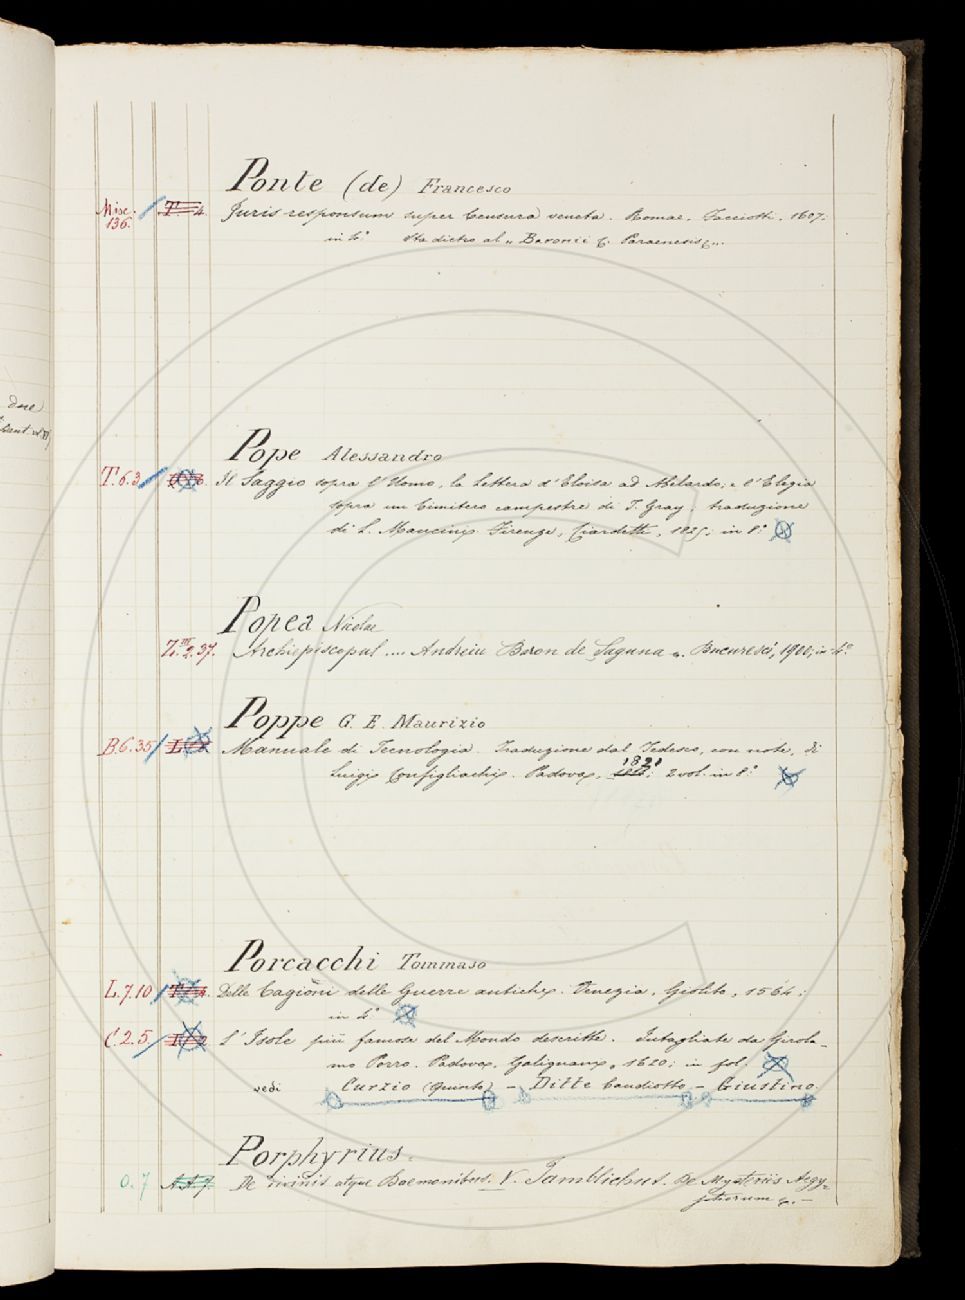 due
Ponte (de) Francesco
Misc. 136. T 4. Juris responsum super Censura veneta. Romae, Facciotti, 1607;
in 4° Sta dietro al „ Baronii C. Paraenesis
Pope Alessandro
T.6.3 Il Saggio sopra l'Uomo, la lettera d'Eloisa ad Abelardo; e l'Elegia
sopra un Cimitero campestre di T. Gray. traduzione
di L. Mancini. Firenze, Ciardetti, 1825; in 8°
Popea Nicolae
Z.III 2.37. Archiepiscopul .... Andreiu Baron de Saguna. Bucuresci, 1900; in 4°
Poppe G. E. Maurizio
B.6.35 Manuale di Tecnologia. traduzione dal Tedesco, con note, di
Luigi Configliachi. Padova, 1821; 2 vol. in 8°
Porcacchi Tommaso
L.7.10 Delle Cagioni delle Guerre antiche. Venezia, Giolito, 1564;
in 4°
C.2.5. L'Isole più famose del Mondo descritte. Intagliate da Girola-
mo Porro. Padova, Galignani, 1620; in fol.
vedi Curzio (Quinto) - Ditte Candiotto - Giustino.
Porphyrius.
O.7 A A 7. De Divinis atque Daemonibus. V. Jamblichus. De Mysteriis Aegy=
ptiorum